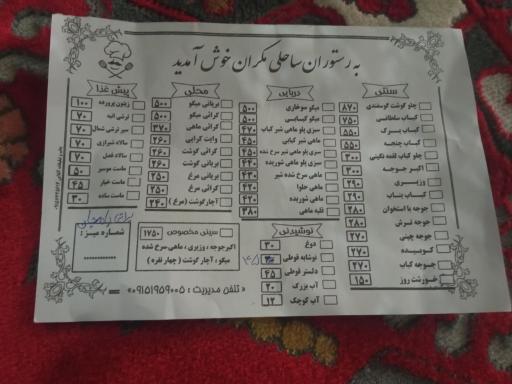 به رستوران ساحلی مکران خوش آمدید
سنتی
چلو گوشت گوسفندی ۸۷۰
کباب سلطانی ۷۵۰
کباب برگ ۵۵۰
کباب چنجه ۵۵۰
چلو کباب لقمه نگینی ۳۰۰
اکبر جوجه ۳۰۰
وزیری ۲۹۰
کباب بناب ۲۹۰
جوجه با استخوان ۲۸۰
جوجه ترش ۲۸۰
جوجه چینی ۲۷۰
کوبیده ۲۷۰
جوجه کباب ۲۷۰
خورشت روز ۱۵۰
دریایی
میگو سوخاری ۵۰۰
میگو کبابی ۵۰۰
سبزی پلو ماهی شیر کباب ۴۷۰
ماهی شیر کبابی ۴۵۰
سبزی پلو ماهی شیر سرخ شده ۴۵۰
سبزی پلو ماهی شوریده ۴۴۰
ماهی سرخ شده شیر ۴۳۰
ماهی حلوا ۴۲۰
ماهی شوریده ۴۲۰
قلیه ماهی ۳۸۰
نوشیدنی
دوغ ۳۰
نوشابه قوطی
دلستر قوطی ۴۵
آب بزرگ ۲۰
آب کوچک ۱۲
محلی
بریانی میگو ۵۰۰
کرائی میگو ۵۰۰
کرائی ماهی ۳۷۰
وایت کرایی ۲۶۰
کرائی گوشت ۲۶۰
بریانی گوشت ۲۶۰
بریانی مرغ ۲۵۰
کرائی مرغ ۲۵۰
آچار گوشت (مرغ) ۲۴۰
سینی مخصوص ۱۷۵۰
اکبرجوجه ، وزیری ، ماهی سرخ شده
میگو ، آچار گوشت ( چهار نفره )
پیش غذا
زیتون پرورده ۱۰۰
ترشی انبه ۷۰
سیر ترشی شمال ۷۰
سالاد شیرازی ۷۰
سالاد فصل ۷۰
ماست موسیر ۵۰
ماست خیار ۴۵
ماست ساده ۳۰
شماره میز :
تلفن مدیریت : ۰۹۱۵۱۹۵۹۰۰۵